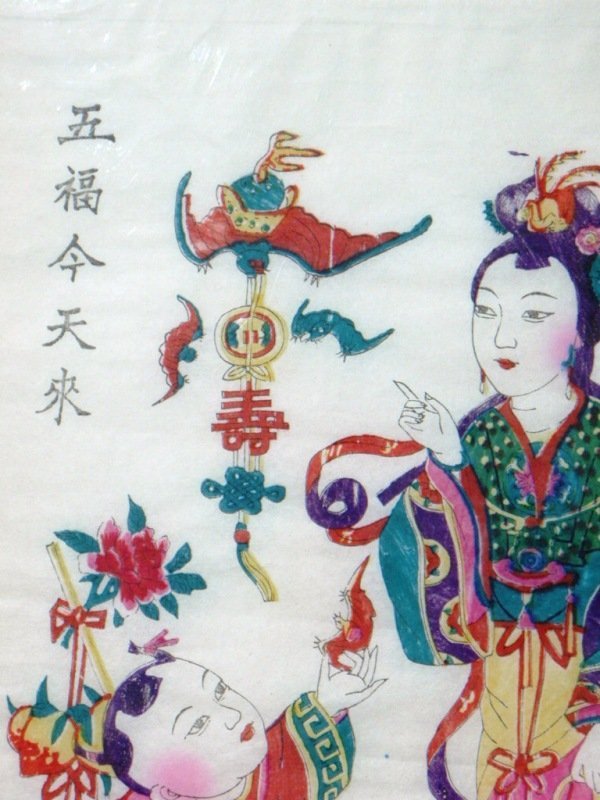 五福今天來
壽